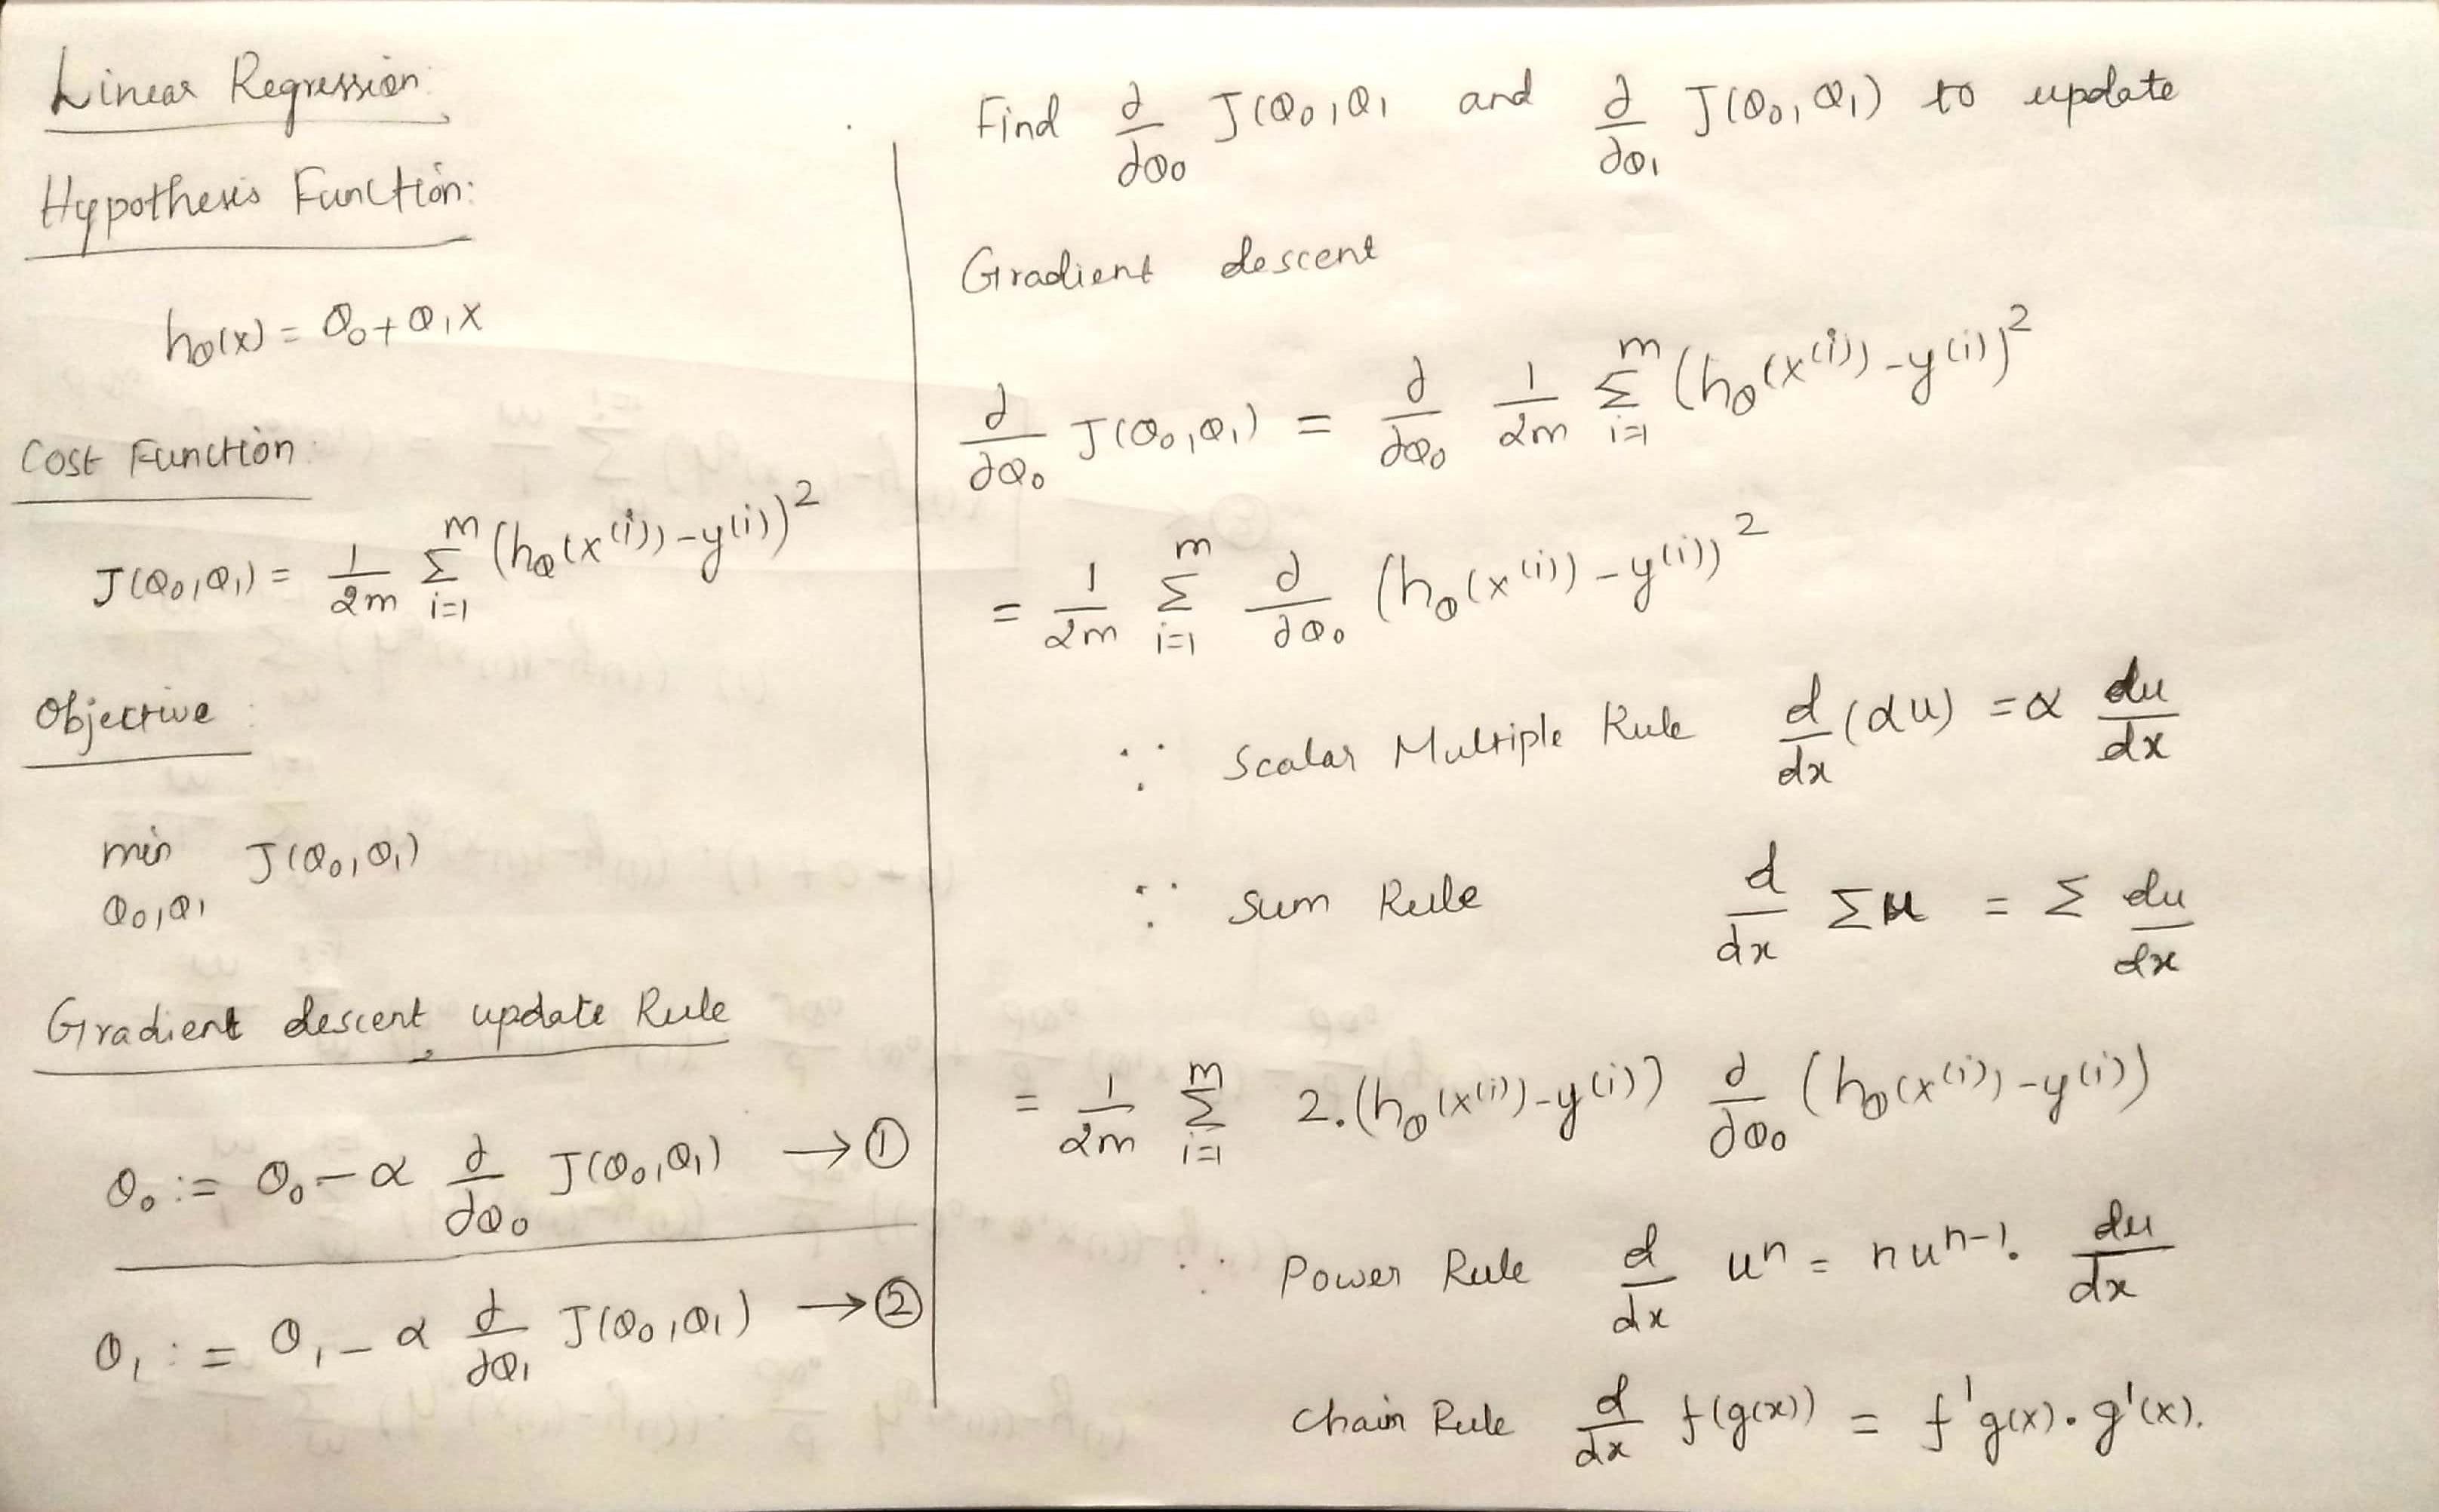 Linear Regression:
Hypothesis Function:
hθ(x) = θ₀ + θ₁x
Cost Function:
J(θ₀,θ₁) = 1/2m Σᵢ₌₁ᵐ (hθ(x⁽ⁱ⁾) - y⁽ⁱ⁾)²
Objective:
min J(θ₀,θ₁)
θ₀,θ₁
Gradient descent update Rule
θ₀ := θ₀ - α ∂/∂θ₀ J(θ₀,θ₁) → ①
θ₁ := θ₁ - α ∂/∂θ₁ J(θ₀,θ₁) → ②
Find ∂/∂θ₀ J(θ₀,θ₁ and ∂/∂θ₁ J(θ₀,θ₁) to update
Gradient descent
∂/∂θ₀ J(θ₀,θ₁) = ∂/∂θ₀ 1/2m Σᵢ₌₁ᵐ (hθ(x⁽ⁱ⁾) - y⁽ⁱ⁾)²
= 1/2m Σᵢ₌₁ᵐ ∂/∂θ₀ (hθ(x⁽ⁱ⁾) - y⁽ⁱ⁾)²
∵ Scalar Multiple Rule d/dx (αu) = α du/dx
∵ Sum Rule d/dx Σu = Σ du/dx
= 1/2m Σᵢ₌₁ᵐ 2.(hθ(x⁽ⁱ⁾) - y⁽ⁱ⁾) ∂/∂θ₀ (hθ(x⁽ⁱ⁾) - y⁽ⁱ⁾)
∵ Power Rule d/dx uⁿ = nuⁿ⁻¹. du/dx
Chain Rule d/dx f(g(x)) = f'g(x).g'(x).